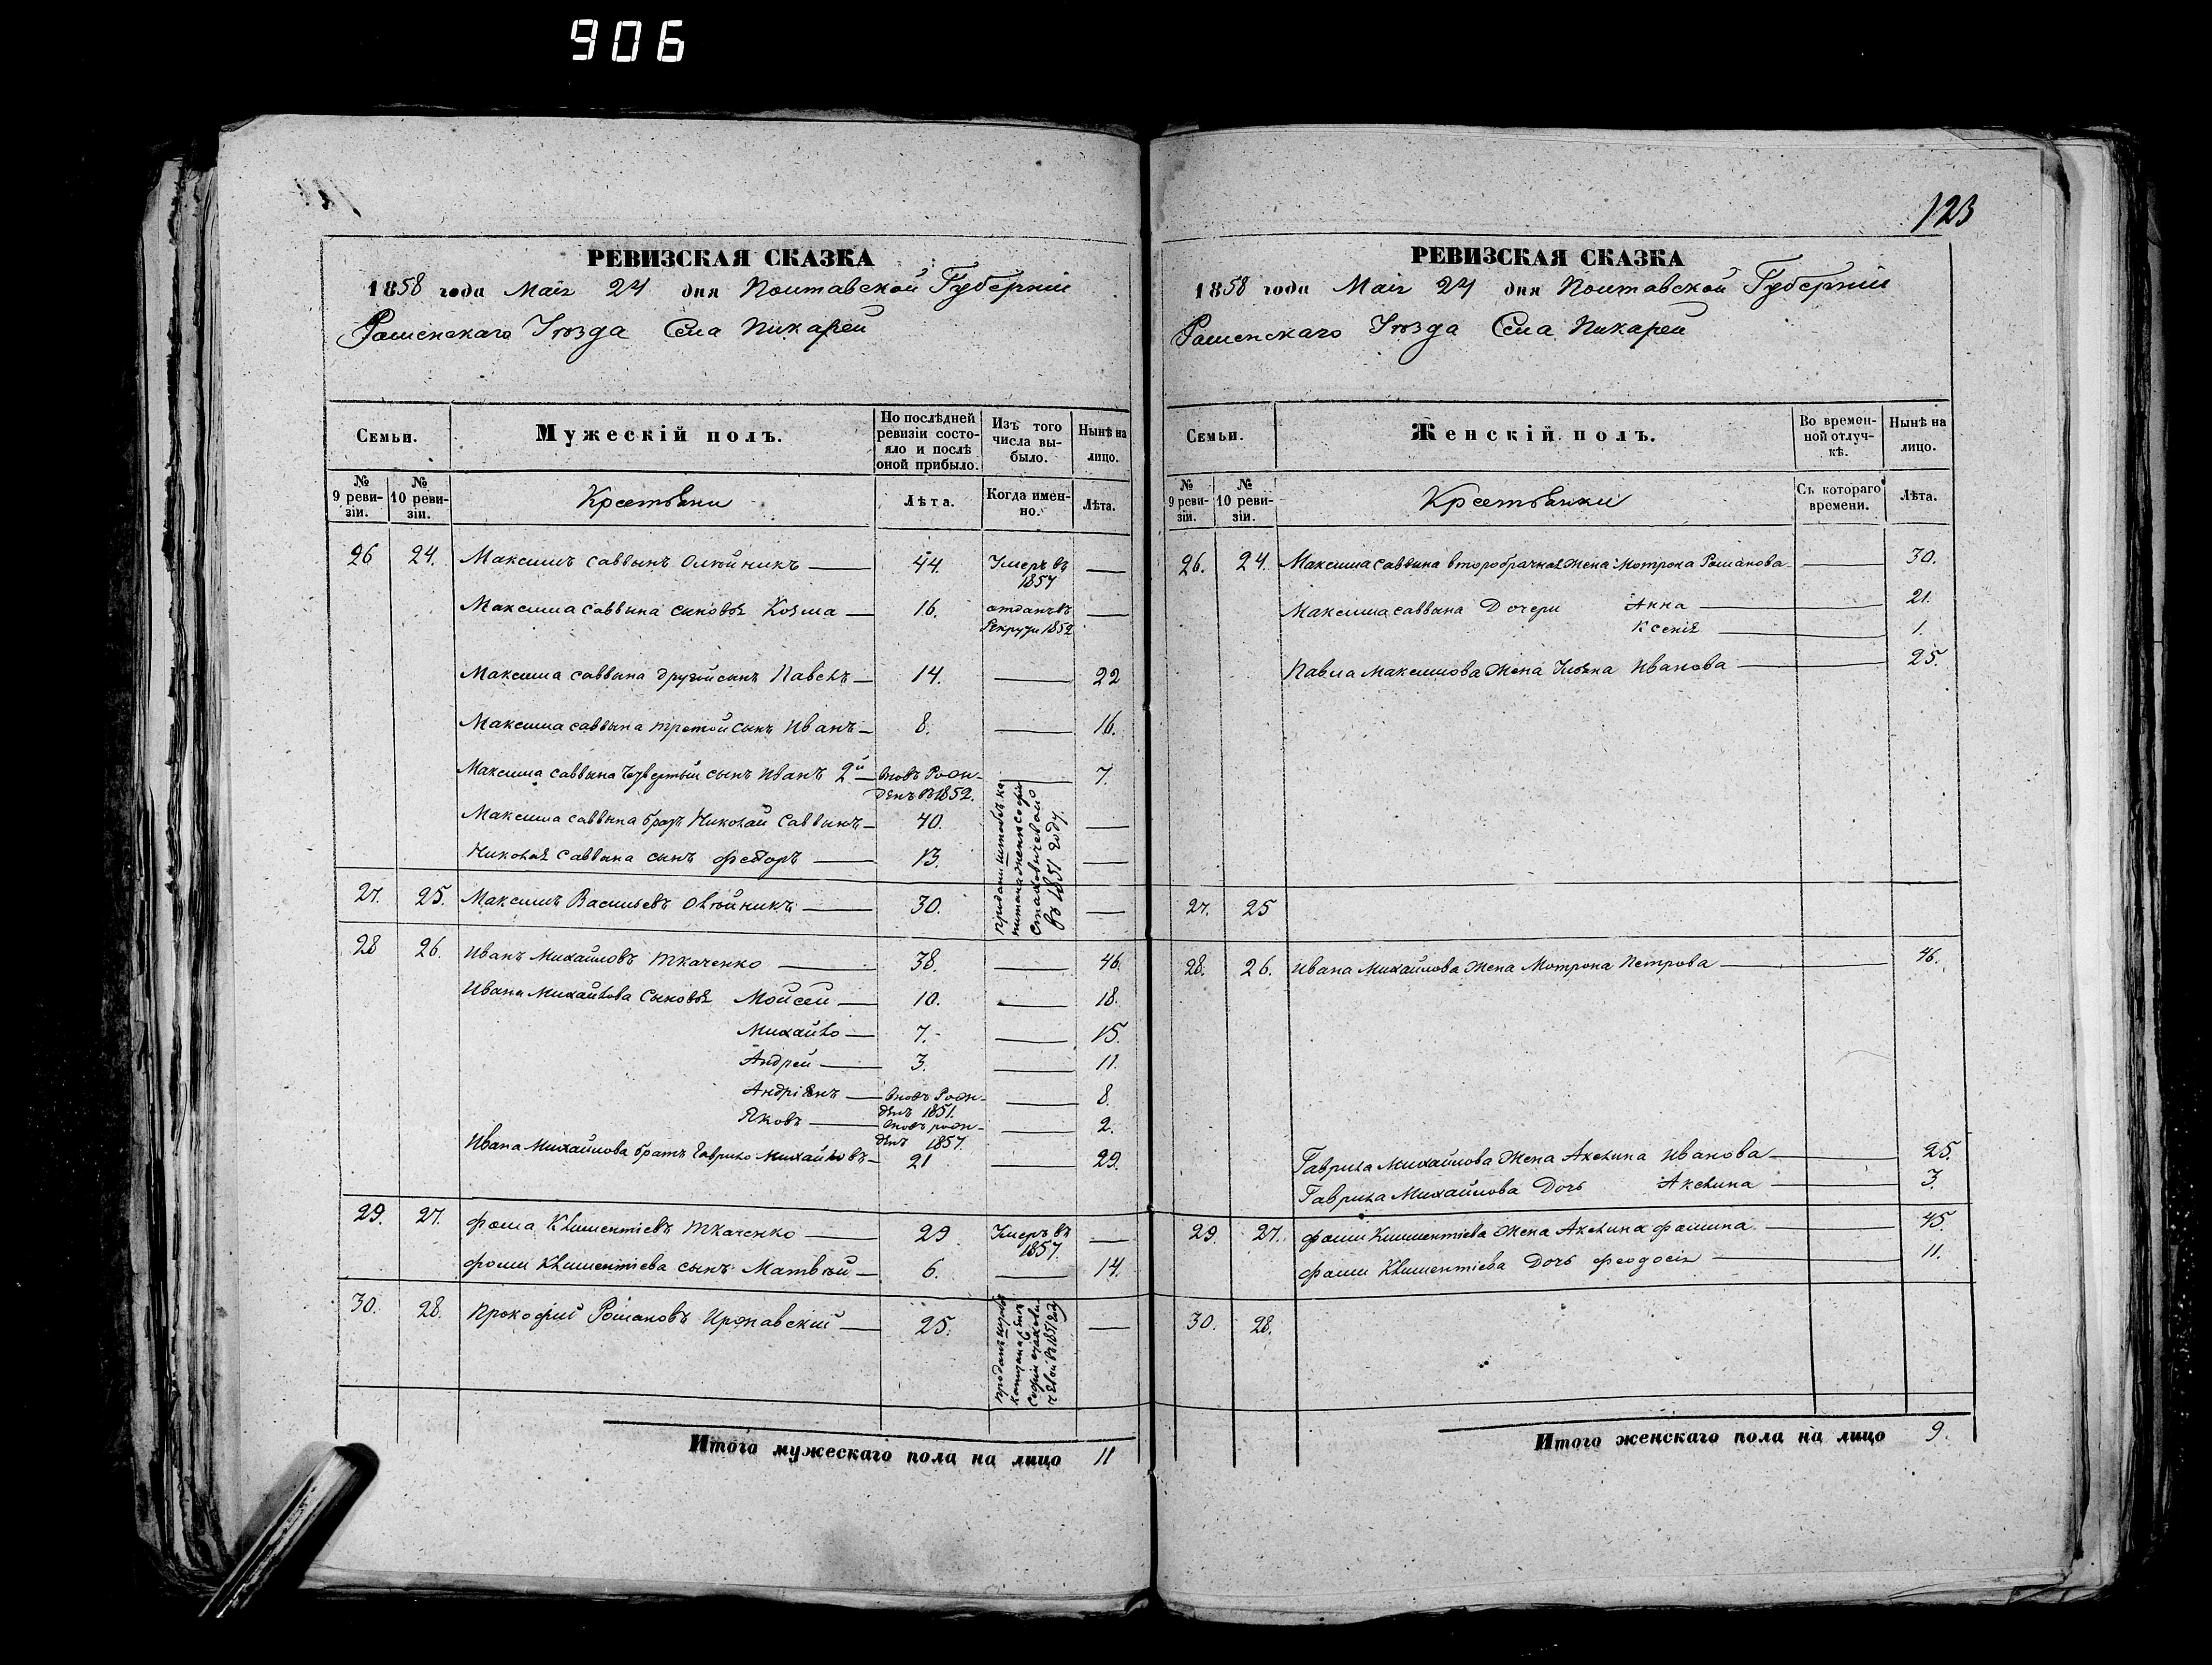 906
РЕВИЗСКАЯ СКАЗКА
1858 года Маія 24 дня Полтавской Губерніи
Роменскаго Уѣзда Села Пикарей
Семьи.
Мужескій полъ.
По послѣдней ревизіи состояло и послѣ оной прибыло.
Изъ того числа выбыло.
Нынѣ на лицо.
№ 9 ревизіи.
№ 10 ревизіи.
Крестьяни
Лѣта.
Когда именно.
Лѣта.
26 24. Максимъ Саввынъ Олѣйникъ — 44. Умеръ въ 1857 —
Максима Саввына сыновья Козма — 16. отданъ въ Рекруты 1852 —
Максима Саввына другой сынъ Павелъ — 14. — 22
Максима Саввына третой сынъ Иванъ — 8. — 16.
Максима Саввына Четвертый сынъ Иванъ 2й — вновь Рожденъ въ 1852. — 7.
Максима Саввына братъ Николай Саввынъ — 40. —
Николая Саввына сынъ Федоръ — 13. —
27. 25. Максимъ Васильевъ Олѣйникъ — 30. —
проданы штабсъ капитана женѣ Софіи Стаховичевой въ 1851 году.
28 26. Иванъ Михайловъ Ткаченко — 38. — 46.
Ивана Михайлова Сыновья Мойсей — 10. — 18.
Михайло — 7. — 15.
Андрей — 3. — 11.
Андріянъ — вновь Рожденъ 1851. — 8.
Яковъ — вновь рожденъ 1857. — 2.
Ивана Михайлова братъ Гаврило Михайловъ — 21 — 29.
29. 27. Фома Климентіевъ Ткаченко — 29 Умеръ въ 1857. —
Фомы Климентіева сынъ Матвѣй — 6. — 14.
30. 28. Прокофий Романовъ Иржавский — 25. —
Итого мужескаго пола на лицо 11
123
РЕВИЗСКАЯ СКАЗКА
1858 года Маія 24 дня Полтавской Губерніи
Роменскаго Уѣзда Села Пикарей
Семьи.
Женскій полъ.
Во временной отлучкѣ.
Нынѣ на лицо.
№ 9 ревизіи.
№ 10 ревизіи.
Крестьянки
Съ котораго времени.
Лѣта.
26. 24. Максима Саввина второбрачная жена Мотрона Романова — 30.
Максима Саввына Дочери Анна — 21.
Ксенія — 1.
Павла Максимова жена Ульяна Иванова — 25.
27. 25
28. 26. Ивана Михайлова жена Мотрона Петрова — 46.
Гаврила Михайлова жена Акелина Иванова — 25.
Гаврила Михайлова Дочь Акелина — 3.
29. 27. Фомы Климентіева жена Акелина Фомина — 45.
Фомы Климентіева Дочь Феодосія — 11.
30. 28.
Итого женскаго пола на лицо 9.